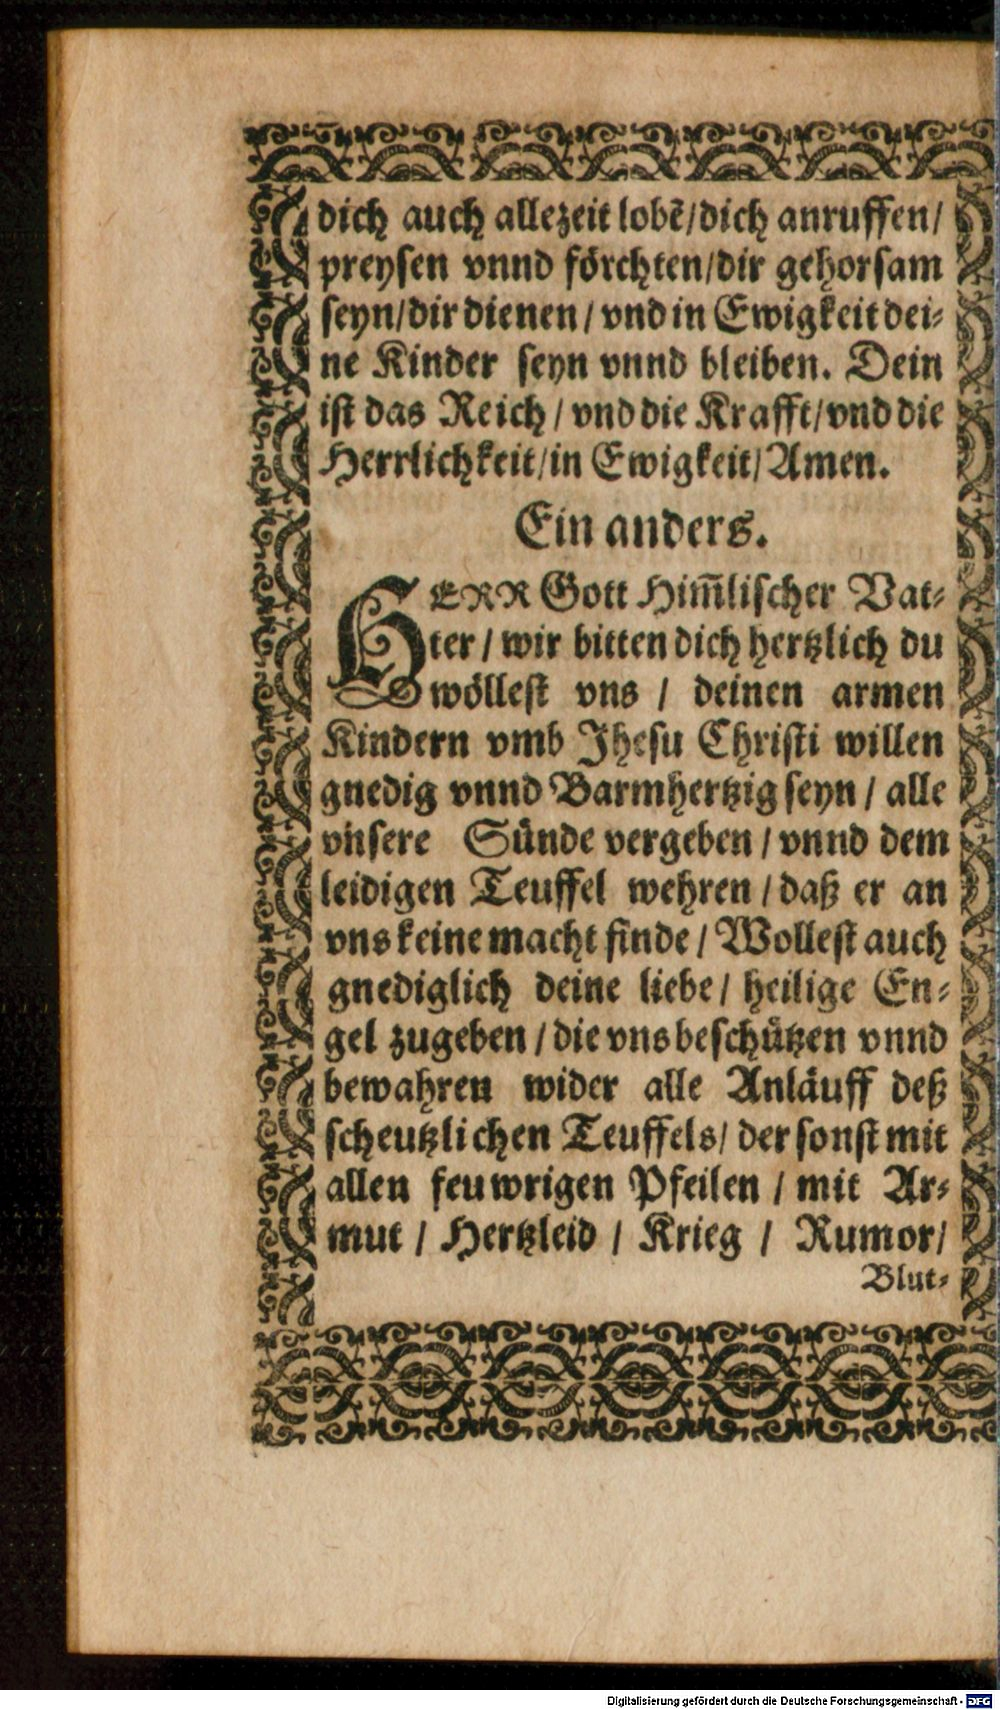 dich auch allezeit lobẽ/dich anruffen/
preysen vnnd förchten/dir gehorsam
seyn/dir dienen/vnd in Ewigkeit dei⸗
ne Kinder seyn vnnd bleiben. Dein
ist das Reich/vnd die Krafft/vnd die
Herrlichkeit/in Ewigkeit/Amen.
Ein anders.
HERR Gott Him̄lischer Vat⸗
ter/wir bitten dich hertzlich du
wöllest vns / deinen armen
Kindern vmb Jhesu Christi willen
gnedig vnnd Barmhertzig seyn / alle
vnsere Sünde vergeben / vnnd dem
leidigen Teuffel wehren / daß er an
vns keine macht finde / Wollest auch
gnediglich deine liebe / heilige En⸗
gel zugeben / die vns beschützen vnnd
bewahren wider alle Anläuff deß
scheutzlichen Teuffels/ der sonst mit
allen feuwrigen Pfeilen / mit Ar⸗
mut / Hertzleid / Krieg / Rumor/
Blut⸗
Digitalisierung gefördert durch die Deutsche Forschungsgemeinschaft - DFG